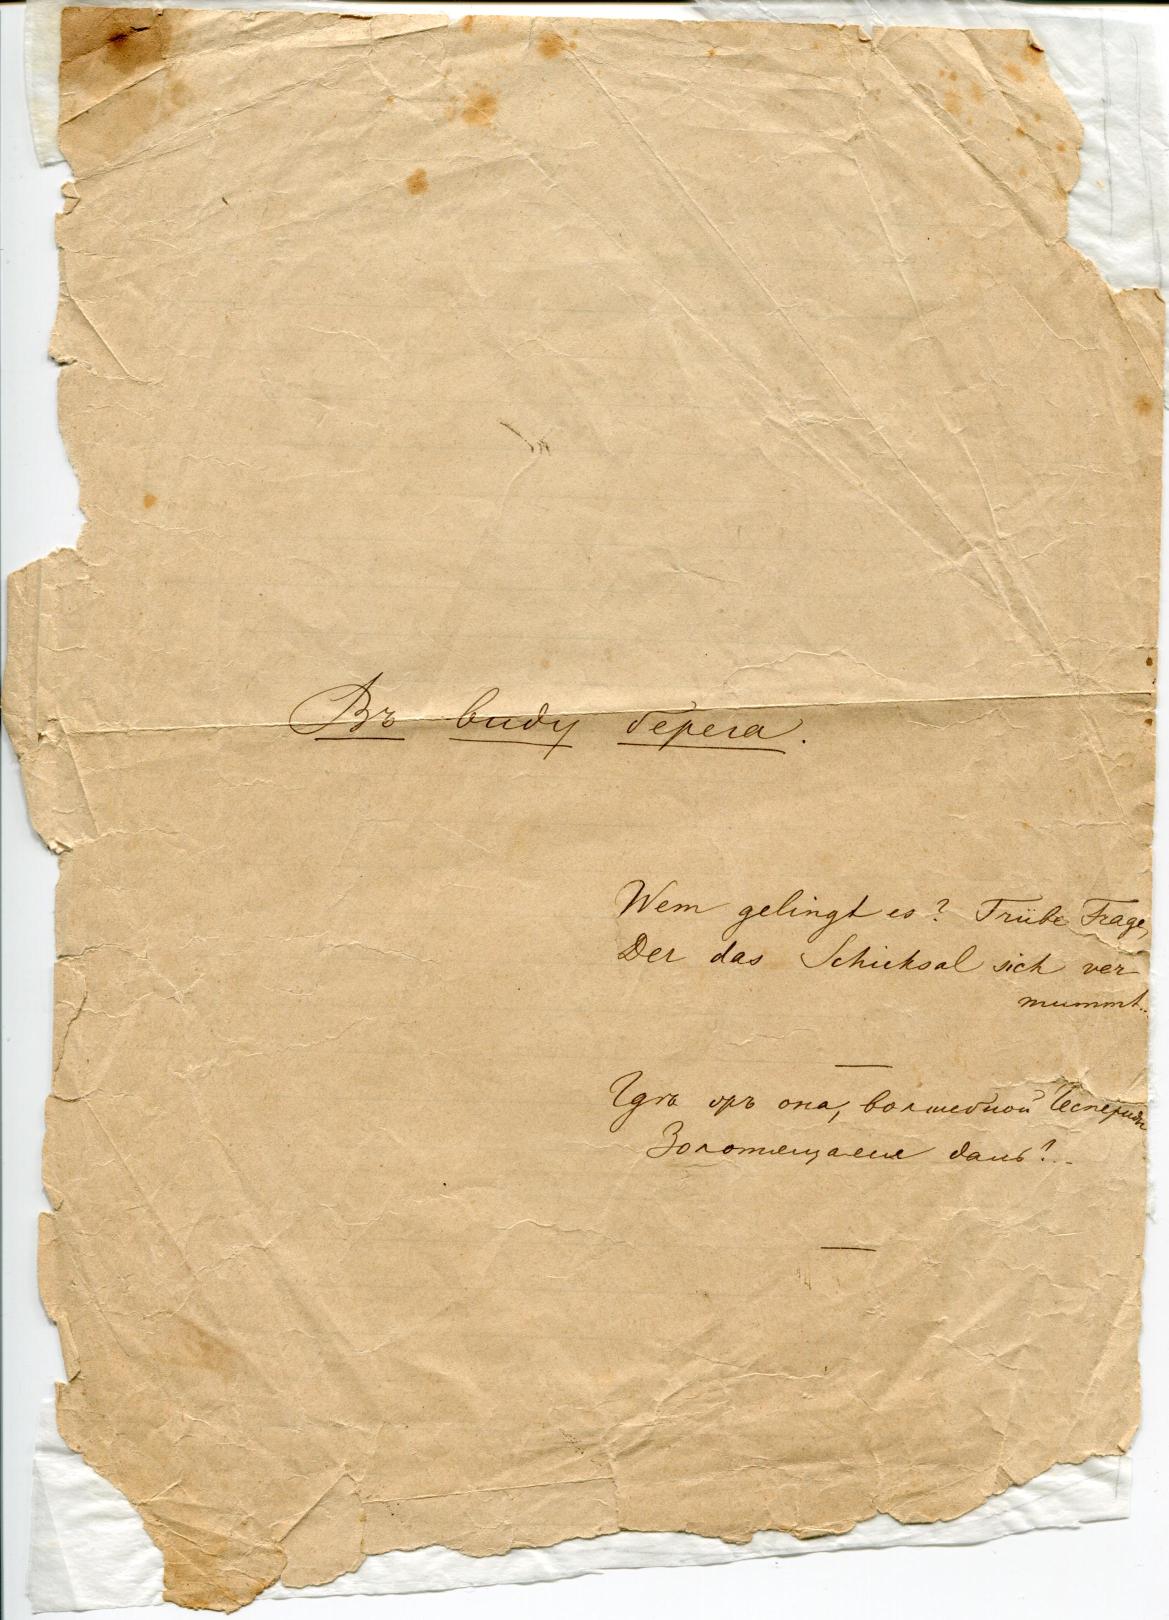 Въ виду берега.
Wem gelingt es? Trübe Frage,
Der das Schicksal sich ver
mummt..
Гдѣ жъ она, волшебной Гесперидъ
Золотящаяся даль?..